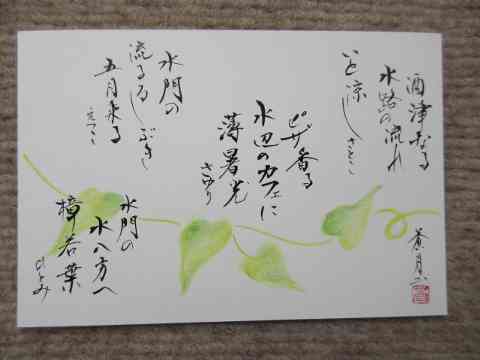 酒津なる
水路の流れ
いと涼し
さとこ
ピザ香る
水辺のカフェに
薄暑光
さゆり
水門の
流るるしぶき
五月来る
えつこ
水門の
水八方へ
樟若葉
ひとみ